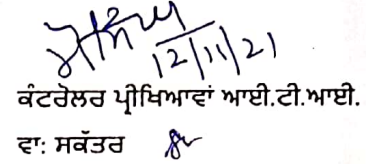 12/11/21
ਕੰਟਰੋਲਰ ਪ੍ਰੀਖਿਆਵਾਂ ਆਈ.ਟੀ.ਆਈ.
ਵਾ: ਸਕੱਤਰ